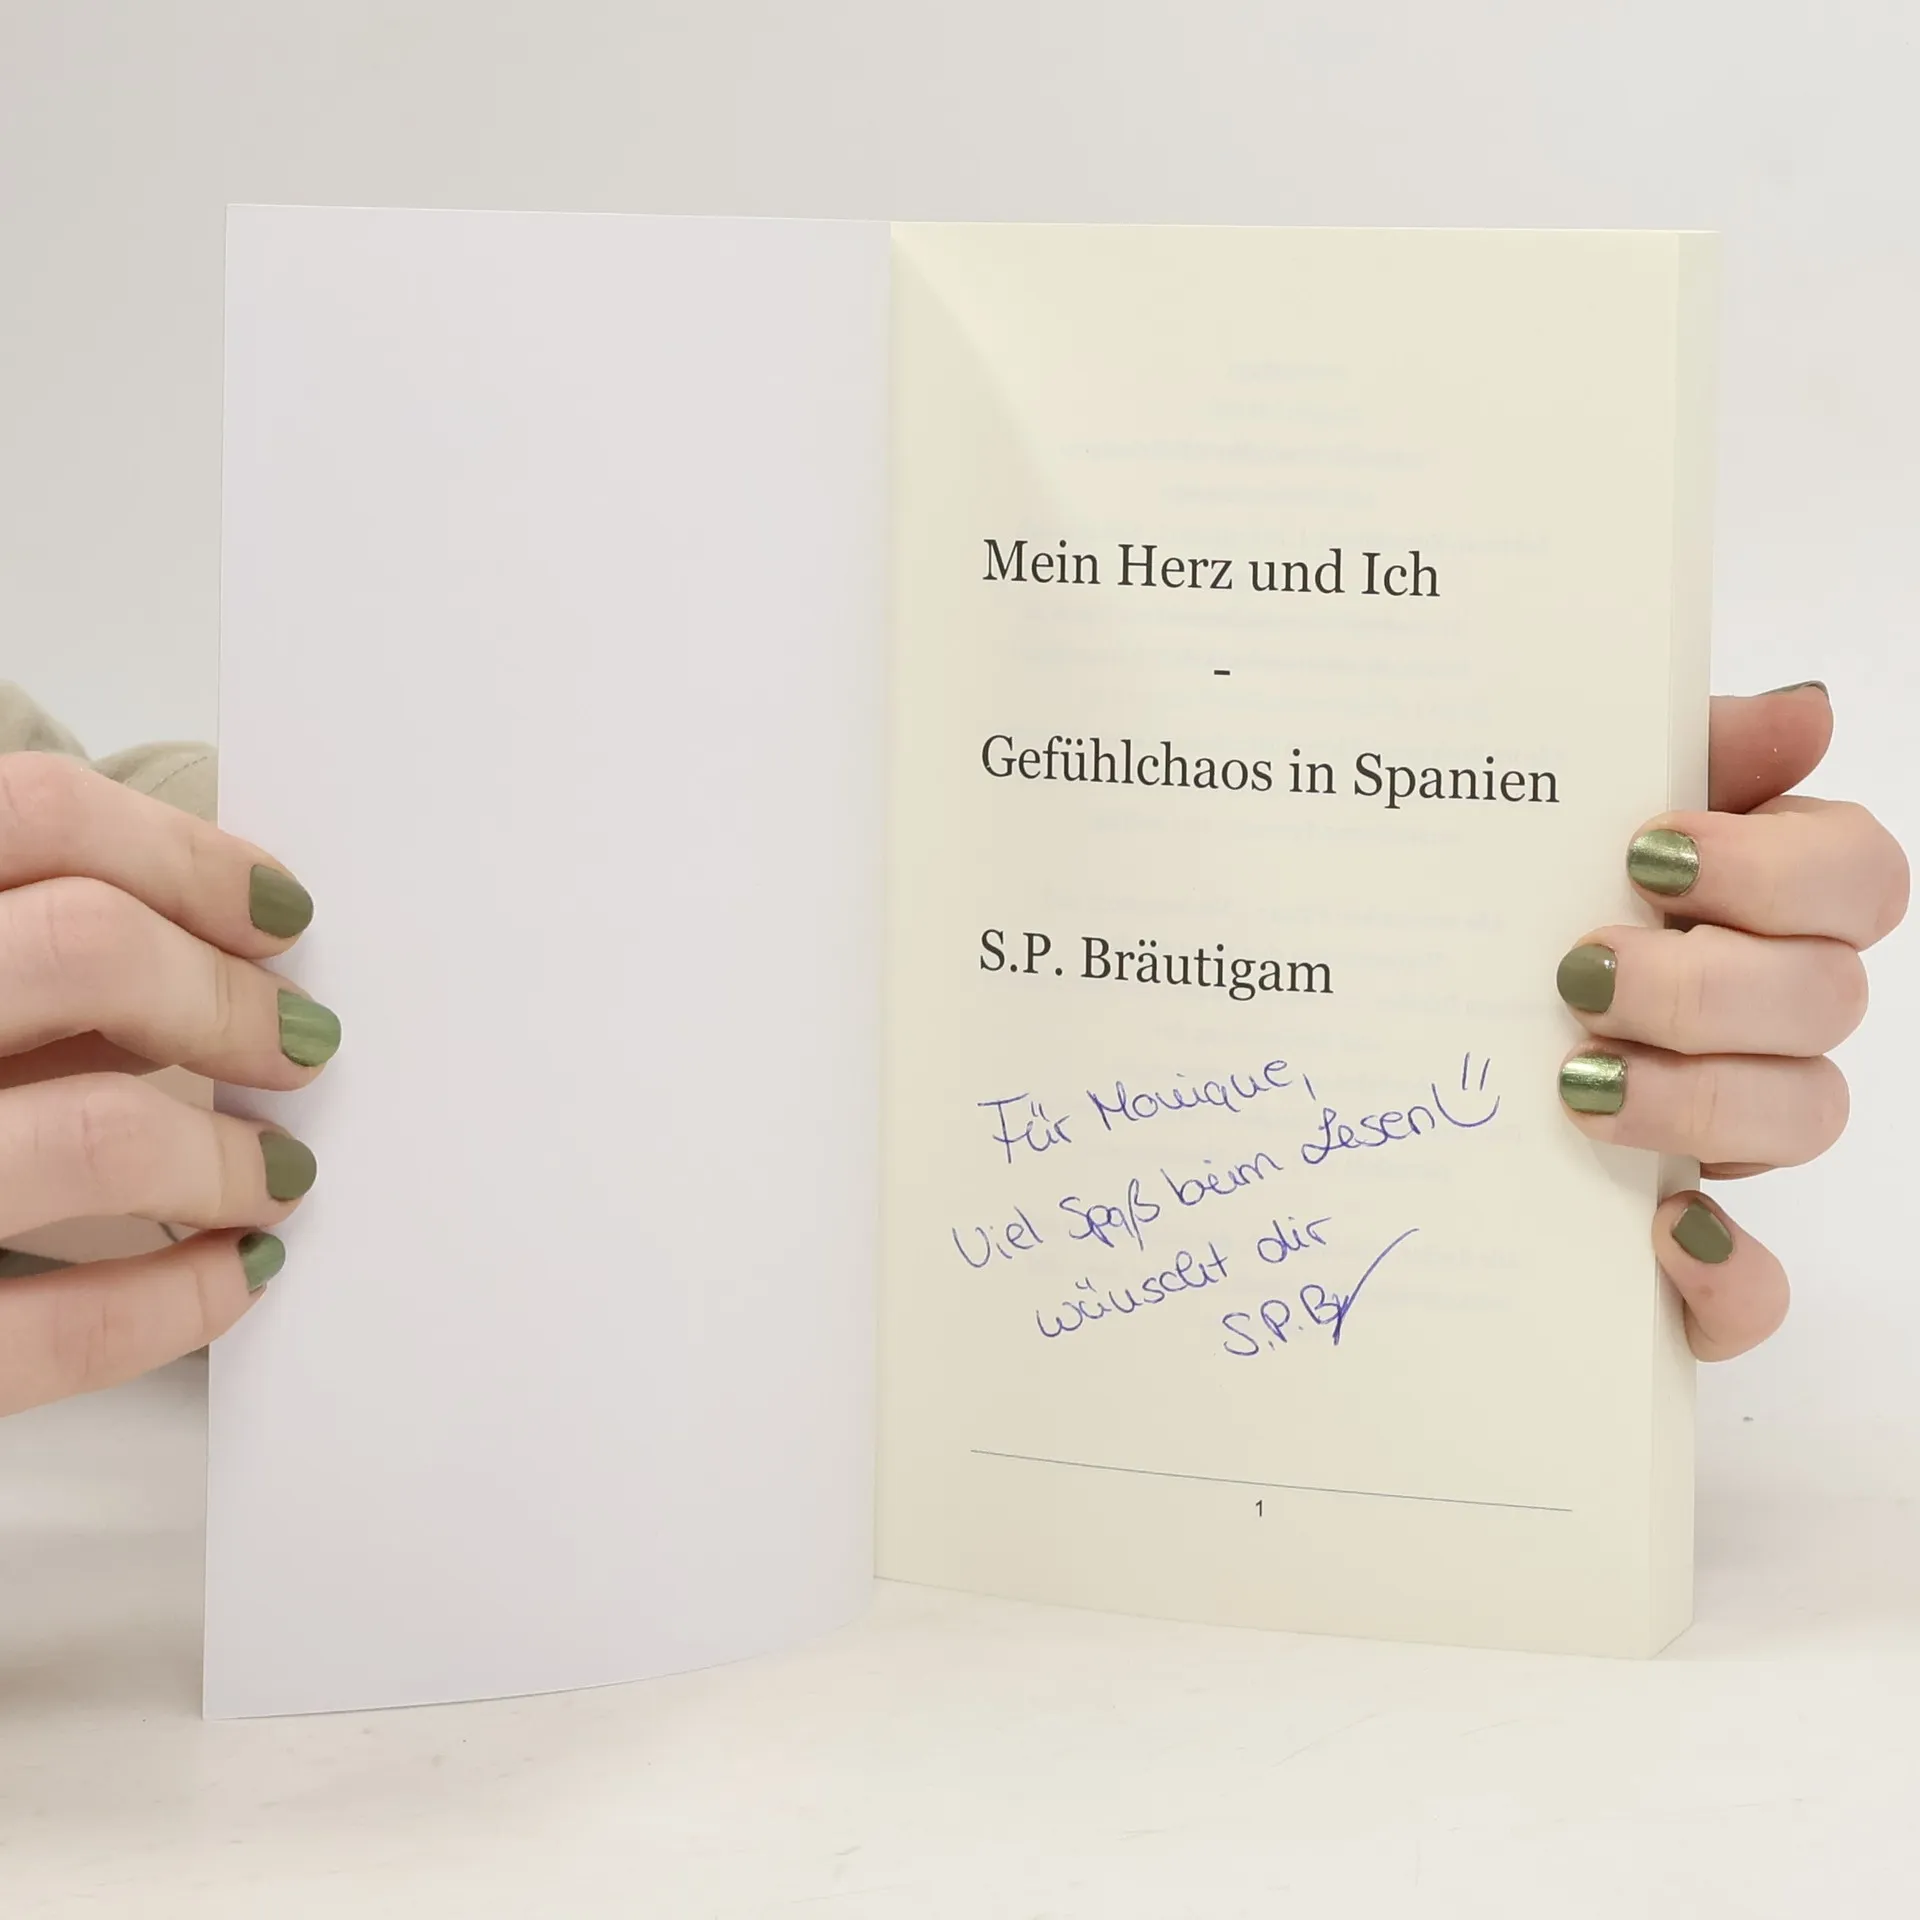 Mein Herz und Ich
-
Gefühlchaos in Spanien
S.P. Bräutigam
Für Monique,
Viel Spaß beim Lesen
wünscht dir
S.P.B
1